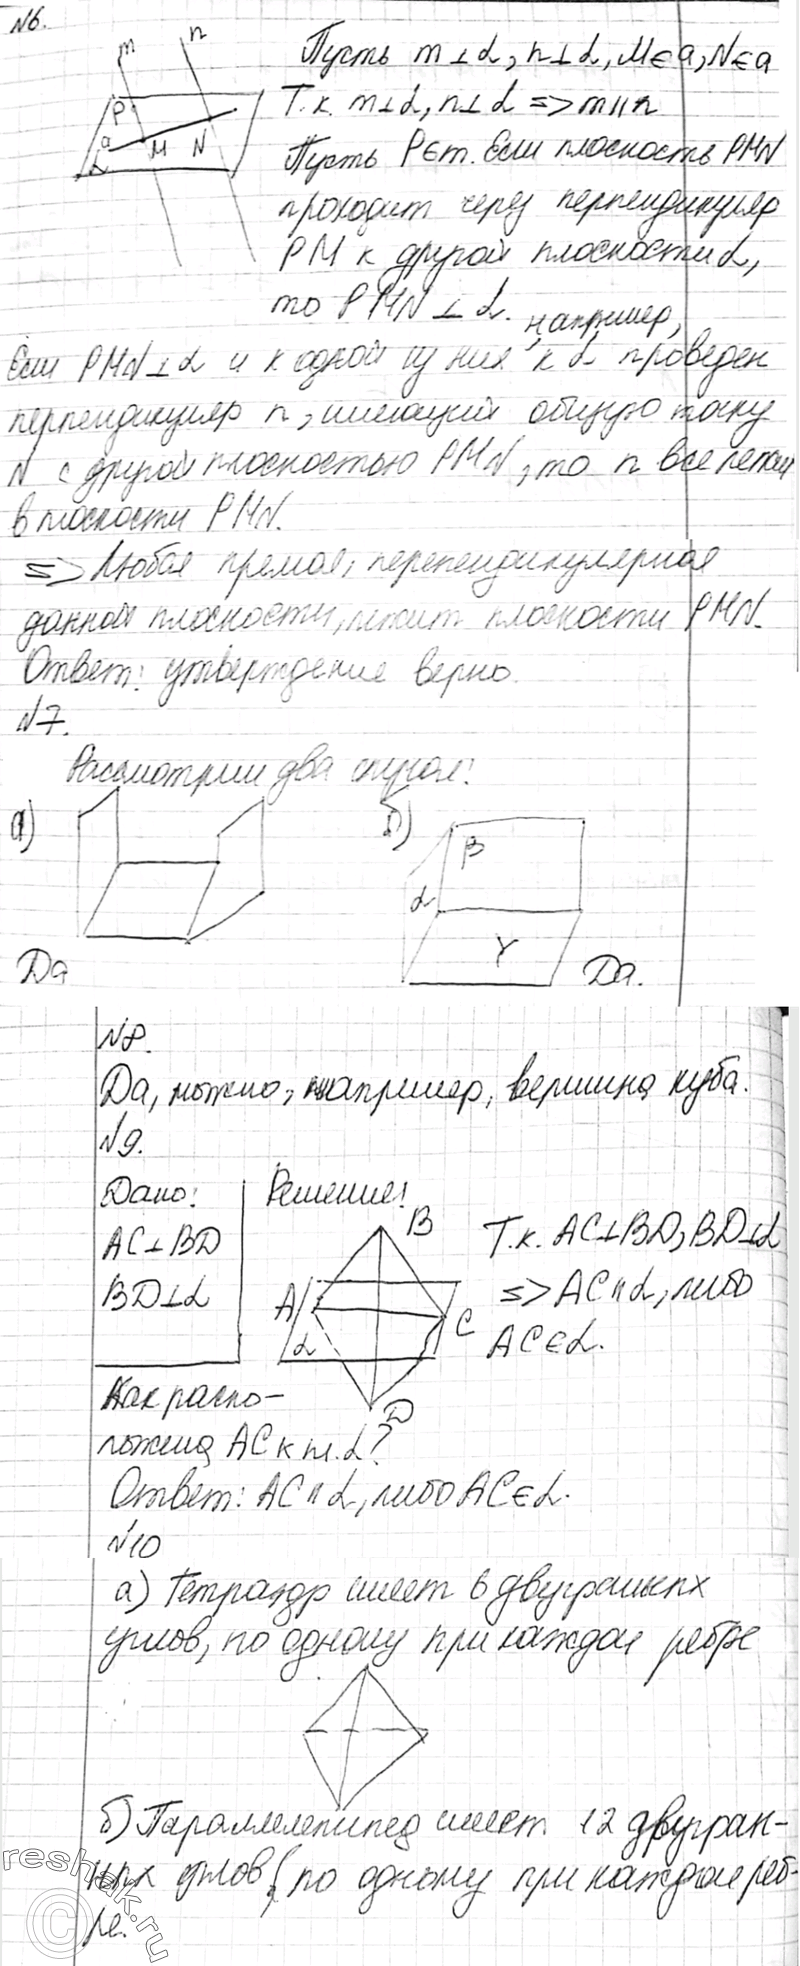 №6.
m n
P
a M N
α
Пусть m⊥α, n⊥α, M∈a, N∈a
Т.к. m⊥α, n⊥α => m||n
Пусть P∈m. Если плоскость PMN
проходит через перпендикуляр
PM к другой плоскости α,
то PMN⊥α.
например,
Если PMN⊥α и к одной из них, к α проведен
перпендикуляр n, имеющий общую точку
N с другой плоскостью PMN, то n все лежит
в плоскости PMN.
=> Любая прямая, перпендикулярная
данной плоскости, лежит плоскости PMN.
Ответ: утверждение верно.
№7.
Рассмотрим два случая:
а) б)
β
α
γ
Да Да.
№8.
Да, можно, например, вершина куба.
№9.
Дано: Решение:
AC⊥BD
BD⊥α
B
A C
α
D
Т.к. AC⊥BD, BD⊥α
=> AC||α, либо
AC∈α.
Как распо-
ложена AC к пл. α?
Ответ: AC||α, либо AC∈α.
№10
а) Тетраэдр имеет 6 двугранных
углов, по одному при каждом ребре
б) Параллелепипед имеет 12 двугран-
ных углов, по одному при каждом реб-
ре.
reshak.ru
©